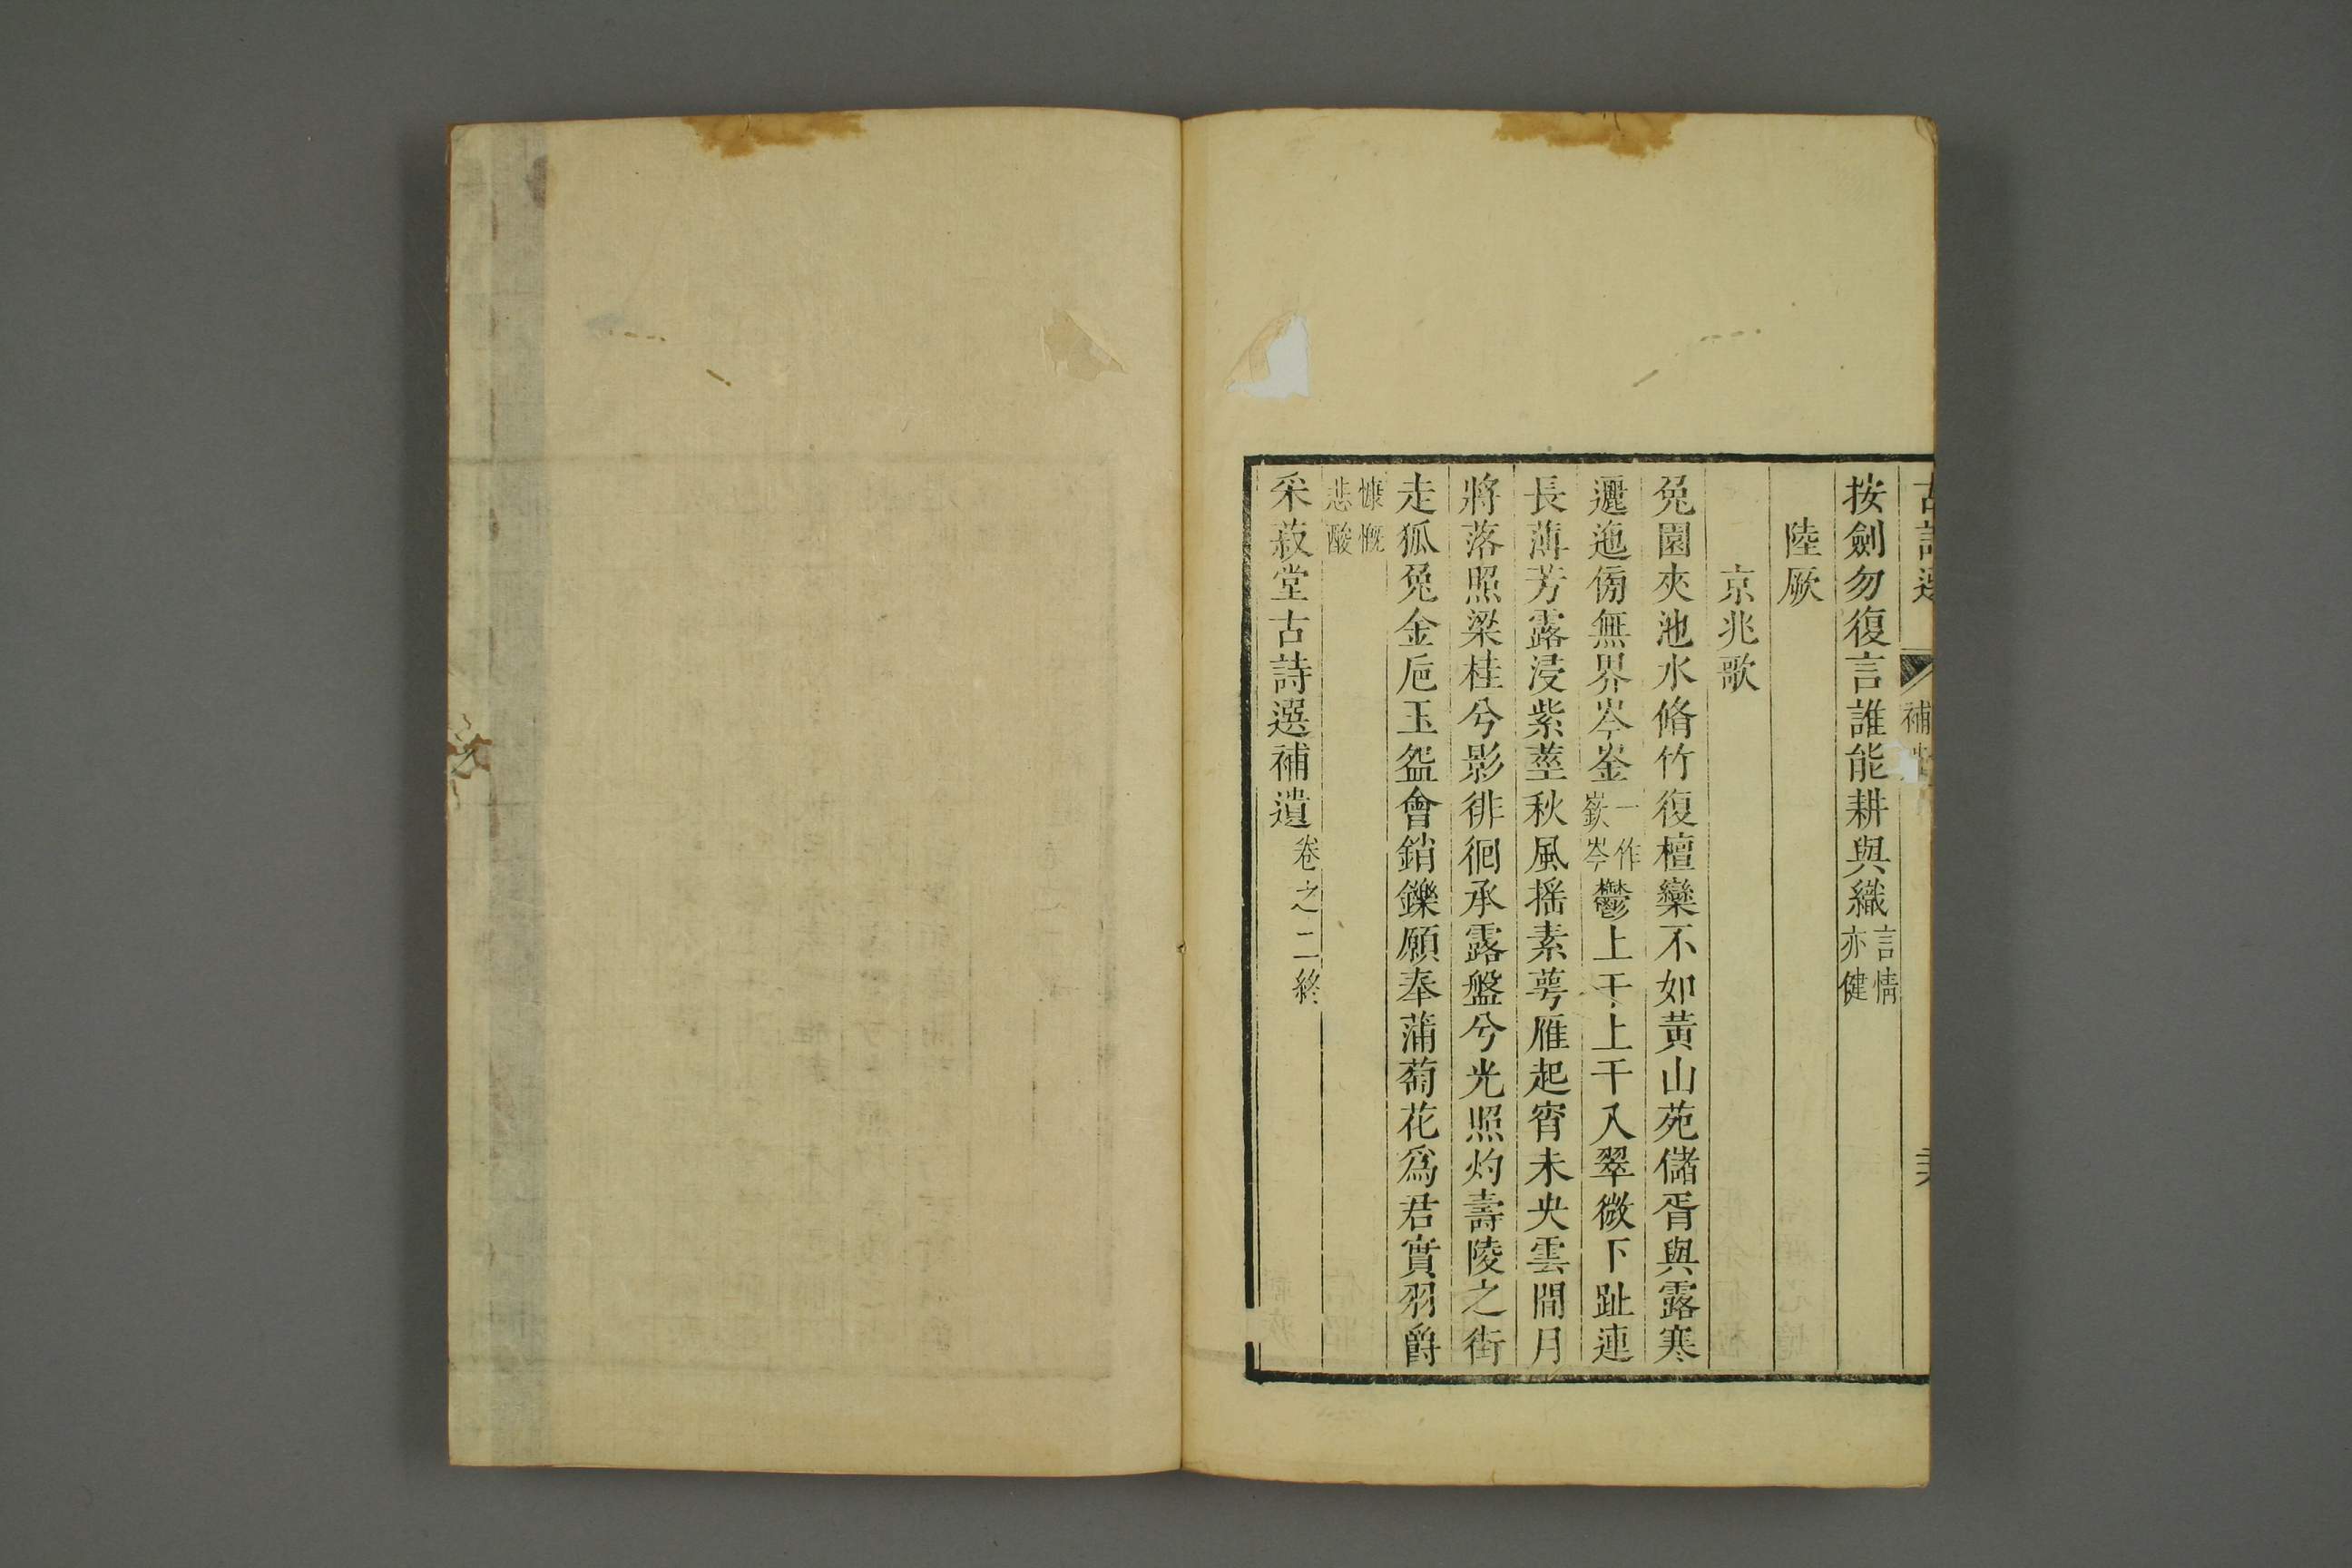 古詩選 補
按劍勿復言誰能耕與織言情亦健
陸厥
京兆歌
兔園夾池水脩竹復檀欒不如黃山苑儲胥與露寒
邐迤傍無界岑崟一作嶔岑鬱上干上干入翠微下趾連
長薄芳露浸紫莖秋風搖素萼雁起宵未央雲間月
將落照梁桂兮影徘徊承露盤兮光照灼壽陵之街
走狐兔金巵玉盌會銷鑠願奉蒲萄花爲君實羽爵
慷慨悲酸
采菽堂古詩選補遺卷之二終